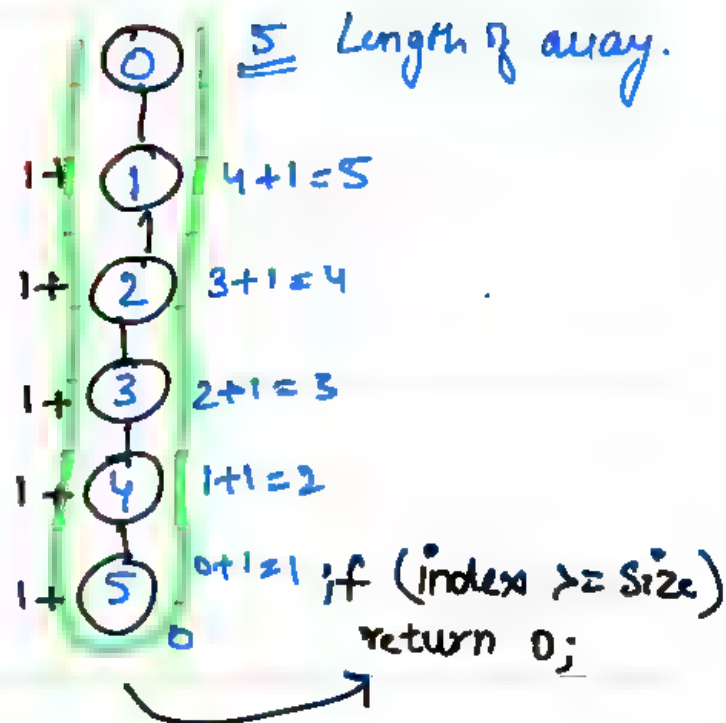 0 5 Length of array.
1+ 1 4+1=5
1+ 2 3+1=4
1+ 3 2+1=3
1+ 4 1+1=2
1+ 5 0+1=1 if (index >= Size)
0 return 0;